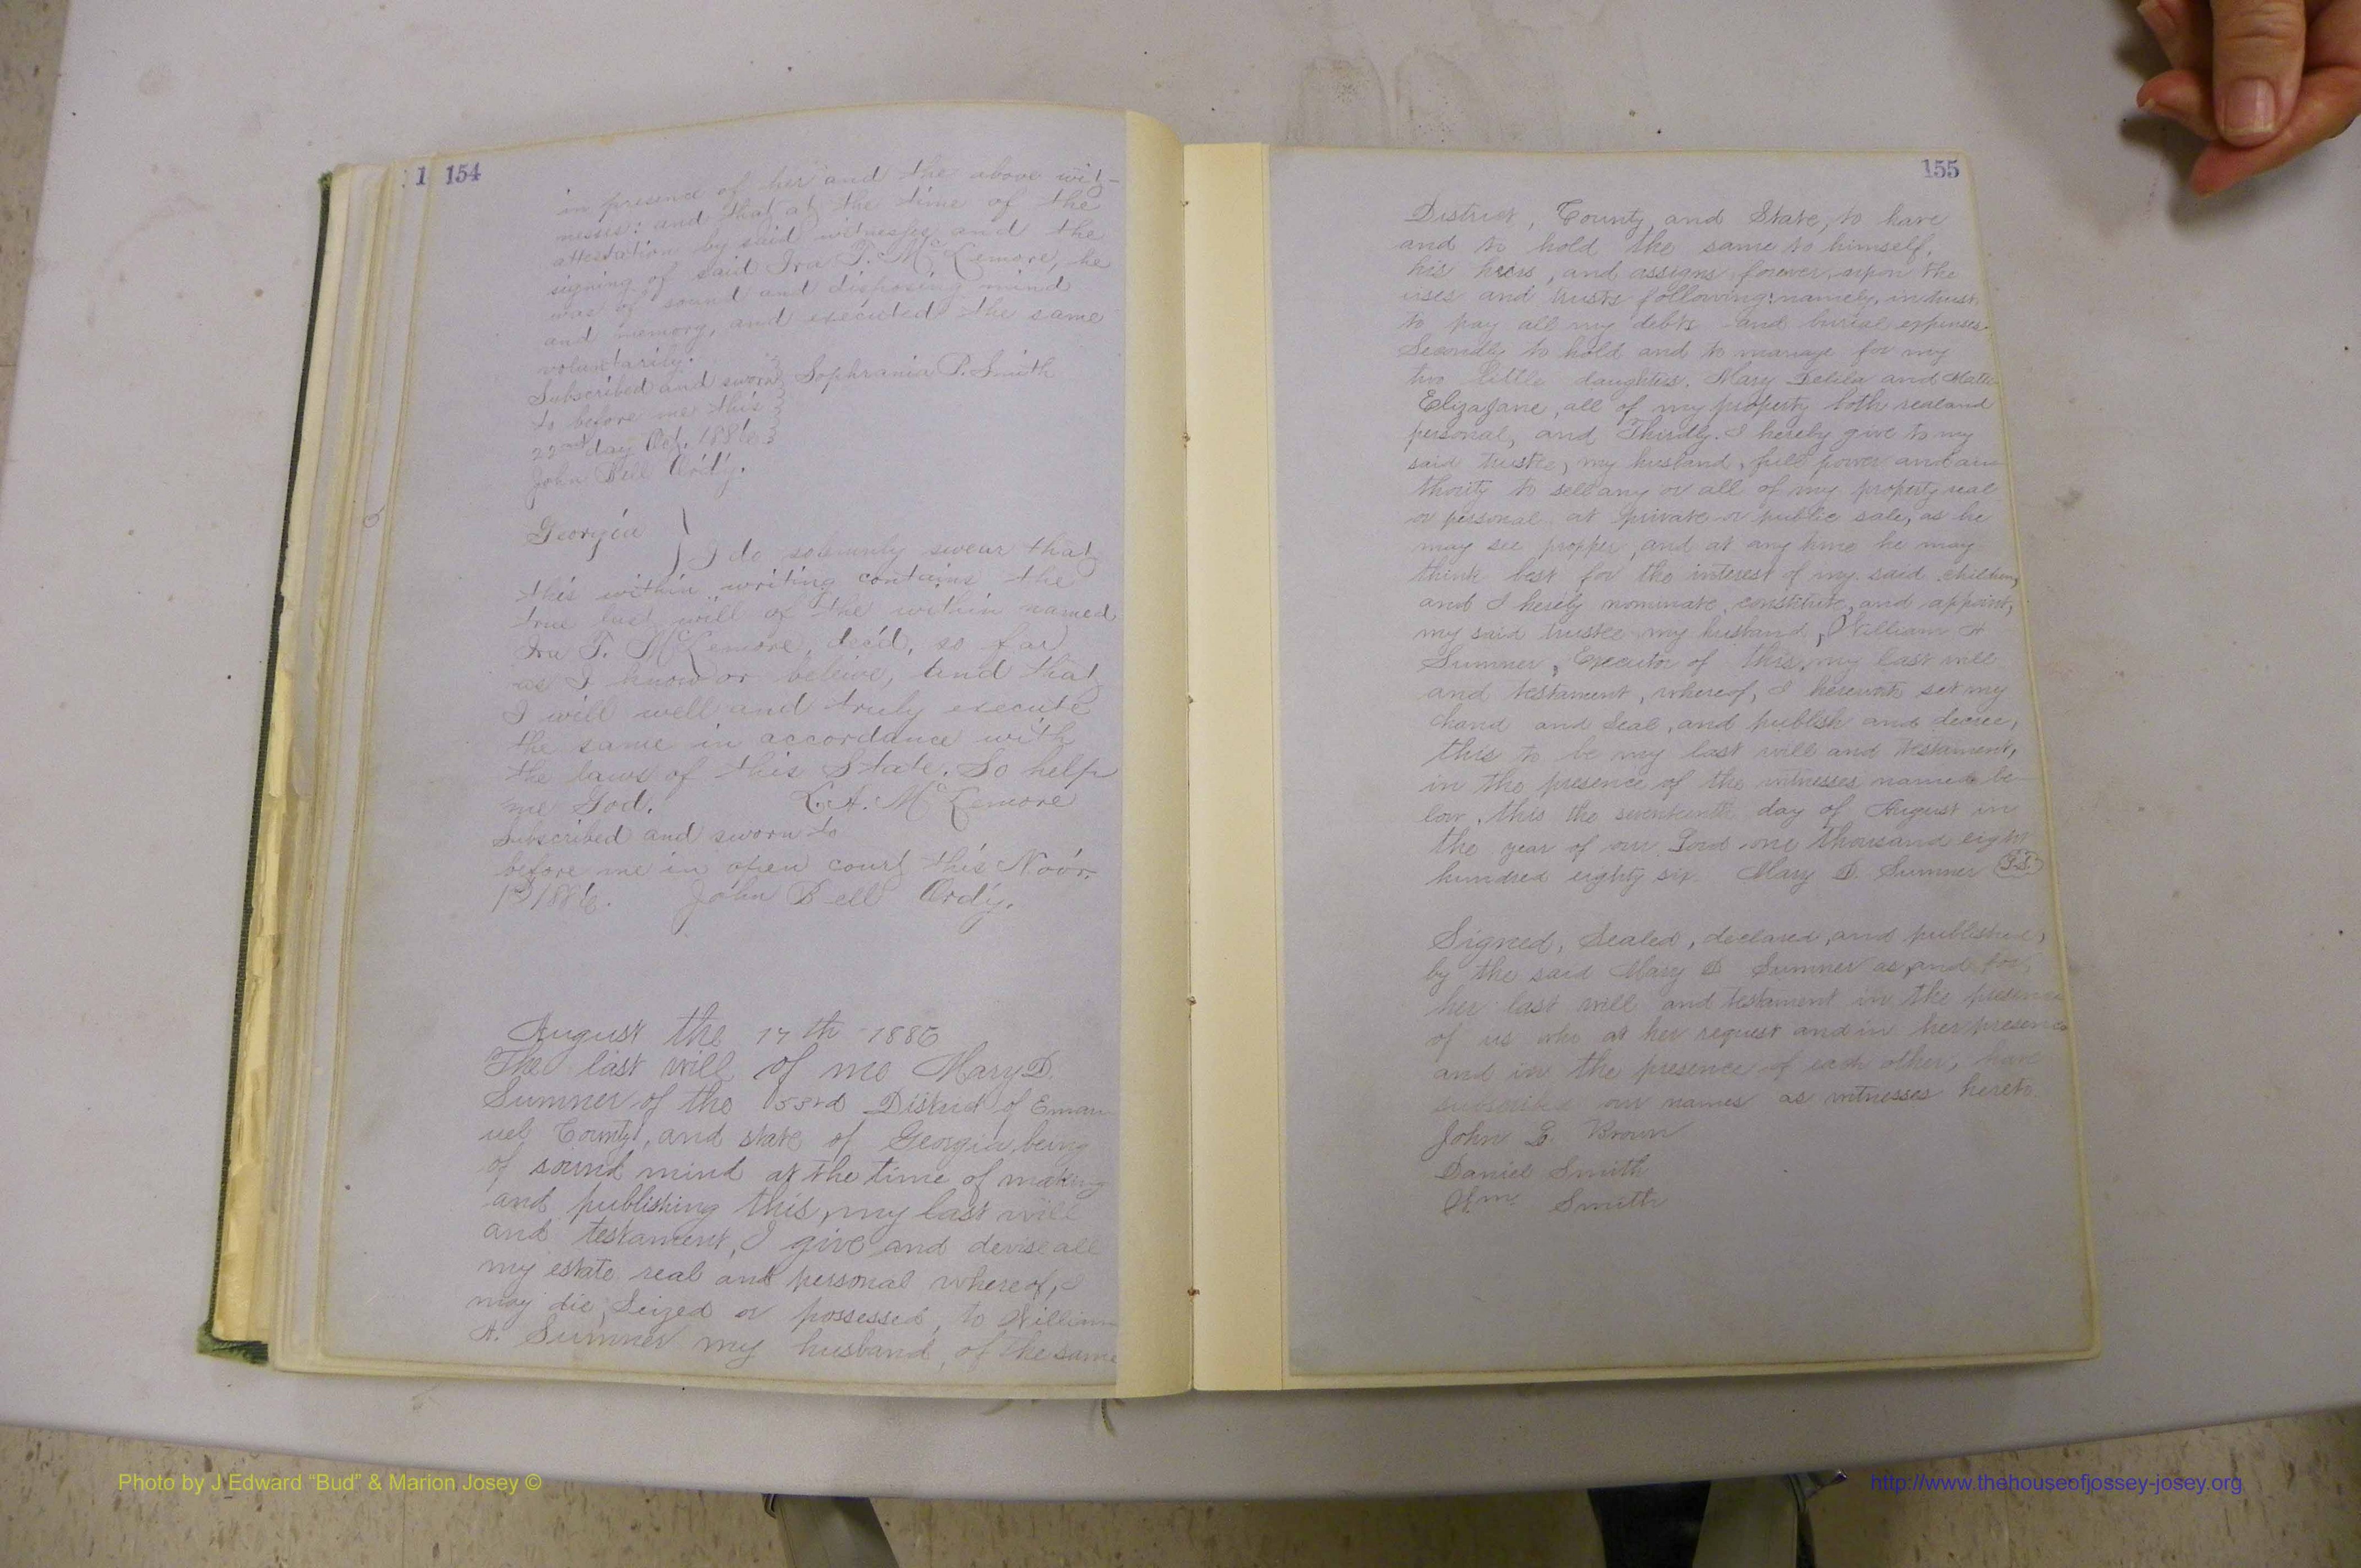 1 154
in presend of her and the above wit-
nesses: and that at the time of the
attestation by said witnesses and the
signing of said Ira T. McLemore, he
was of sound and disposing mind
and memory, and executed the same
voluntarily.
Subscribed and sworn Sophrania P. Smith
to before me this
22nd day Oct. 1886.
John Bell Ord'y.
Georgia
I do solemnly swear that
this within writing contains the
true last will of the within named
Ira T. McLemore, dec'd, so far
as I know or beleive, and that
I will well and truly execute
the same in accordance with
the laws of this State. So help
me God. L. A. McLemore
Subscribed and sworn to
before me in open court this Nov'r.
1st 1886. John Bell Ord'y.
August the 17th 1886
The last will of me Mary D.
Sumner of the 53rd District of Eman
uel County, and state of Georgia, being
of sound mind at the time of making
and publishing this, my last will
and testament, I give and devise all
my estate real and personal whereof, I
may die, Seized or possessed, to William
A. Sumner my husband, of the same
155
District, County, and State, to have
and to hold the same to himself,
his heirs, and assigns, forever, upon the
uses and trusts following: namely, in trust,
to pay all my debts and burial expenses.
Secondly to hold and to manage for my
two little daughters. Mary Delila and
Eliza Jane, all of my property both real and
personal, and Thirdly. I hereby give to my
said trustee, my husband, full power and au
thority to sell any or all of my property real
or personal at private or public sale, as he
may see propper, and at any time he may
think best for the interest of my said children,
and I hereby nominate, constitute, and appoint,
my said trustee my husband, William A
Sumner, Executor of this, my last will
and testament, whereof, I herewith set my
hand and Seal, and publish and decree,
this to be my last will and testament,
in the presence of the witnesses named be
low, this the seventeenth day of August in
the year of our Lord one thousand eight
hundred eighty six. Mary D. Sumner
Signed, Sealed, declared, and published,
by the said Mary D Sumner as, and for,
her last will and testament in the presence
of us who at her request and in her presence
and in the presence of each other, have
subscribed our names as witnesses hereto.
John Brown
Daniel Smith
Wm. Smith
Photo by J Edward “Bud” & Marion Josey ©
http://www.thehouseofjossey-josey.org